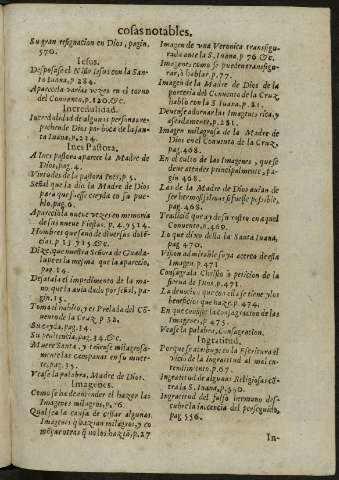 cosas notables.
Su gran resignation en Dios, pagin.
570.
Iesus.
Desposase el Niño Iesus con la San-
to Iuana, p.284.
Apareciola varias vezes en el torno
del Convento, p.120.&c.
Incredulidad.
Incredulidad de algunas personas re-
prehende Dios por boca de la san-
ta Iuana, p.214.
Ines Pastora.
A Ines Pastora aparece la Madre de
Dios, pag.4.
Virtudes de la pastora Ines, p.5.
Señal que la dio la Madre de Dios
para que fuesse creyda en su pue-
blo, pag.6.
Apareciola nueve vezes en memoria
de sus nueve Fiestas. p.4.9514.
Hombres que sanò de diversas dolē-
cias. p.13 915.&c.
Dize, que nuestra Señora de Guada-
lupe es la mesma que la apareciò,
pag.14.
Desatala el impedimento de la ma-
no, que la avia dado por señal, pa-
gin.15.
Toma el habito, y es Prelada del Cō-
vento de la Cruz. p.32.
Su cryda, pag.34.
Su penitencia, pag.34.&c.
Muere Santa, y tañense milagrosa-
mente las campanas en su muer-
te, pag.35.
Vease la palabra, Madre de Dios.
Imagenes.
Como se ha de entender el hazer las
Imagenes milagros, p.76
Qual sea la causa de estar algunas
Imagenes q hazian milagros, y co
mō, y a otras q no los haziā, p.27
Imagen de una Veronica transfigu-
rada ante la S. Iuana, p.76 &c.
Imagenes como se pueden transfigu-
rar, à hablar. p.77.
Imagen de la Madre de Dios de la
porteria del Convento de la Cruz,
hablò con la S. Iuana. p.21.
Devense adornar las Imagenes rica, y
asseadamente. p.281.
Imagen milagrosa de la Madre de
Dios en el Convento de la Cruz.
pag.468.
En el culto de las Imagenes, que se
deve atender principalmente, pa-
gin.468.
Las de la Madre de Dios avian de
ser hermosissimas si fuesse possible,
pag.468.
Tradicion que ay de su rostro en aquel
Convento, p.469.
Lo que dixo della la Santa Iuana,
pag 470.
Vision admirable suya acerca desta
Imagen. p.471
Consagrada Christo à peticion de la
sierva de Dios, p.471.
La devocion que con ella se tiene y los
beneficios que haze, p.474.
En que consiste la Consagracion de las
Imagenes. p.475.
Vease la palabra, Consagracion.
Ingratitud.
Porque se atribuye en la Escritura el
vicio de la ingratitud al mal en-
tendimiento. p.67.
Ingratitud de algunas Religiosas cō-
tra la S. Iuana, p.550.
Ingratitud del falso hermano des-
cubre la inocencia del perseguido,
pag 556.
In-